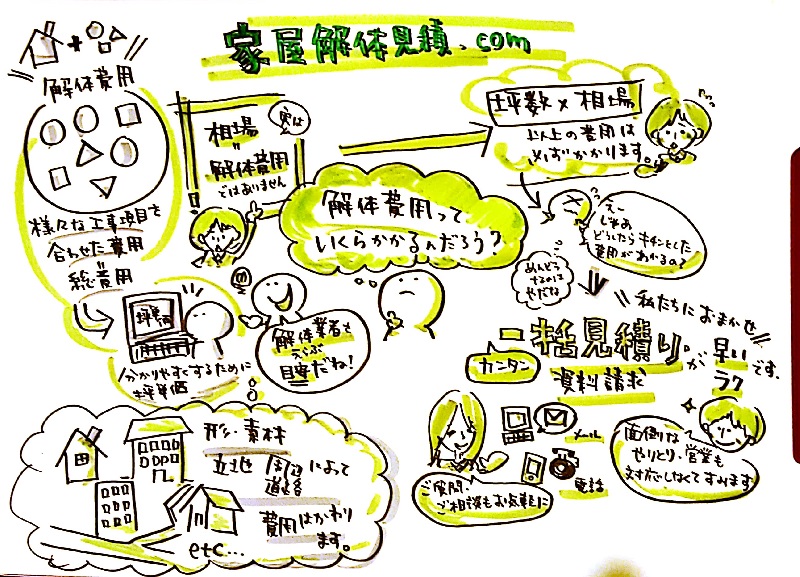 家屋解体見積.com
解体費用
様々な工事項目を
合わせた費用
総費用
実は
相場
=
解体費用
ではありません
解体費用って
いくらかかるんだろう?
坪数×相場
以上の費用は
必ずかかります。
えー
じゃあ
どうしたらキチンとした
費用がわかるの?
めんどう
するのは
やだな
坪単価
分かりやすくするために
坪単価
解体業者を
えらぶ
目安だね!
私たちにおまかせ
一括見積りが
早い
ラク
です。
カンタン
資料請求
メール
電話
ご質問・
ご相談もお気軽に
面倒な
やりとり・営業も
対応しなくてすみます
形・素材
立地
周辺
道路
によって
費用はかわり
ます。
etc...